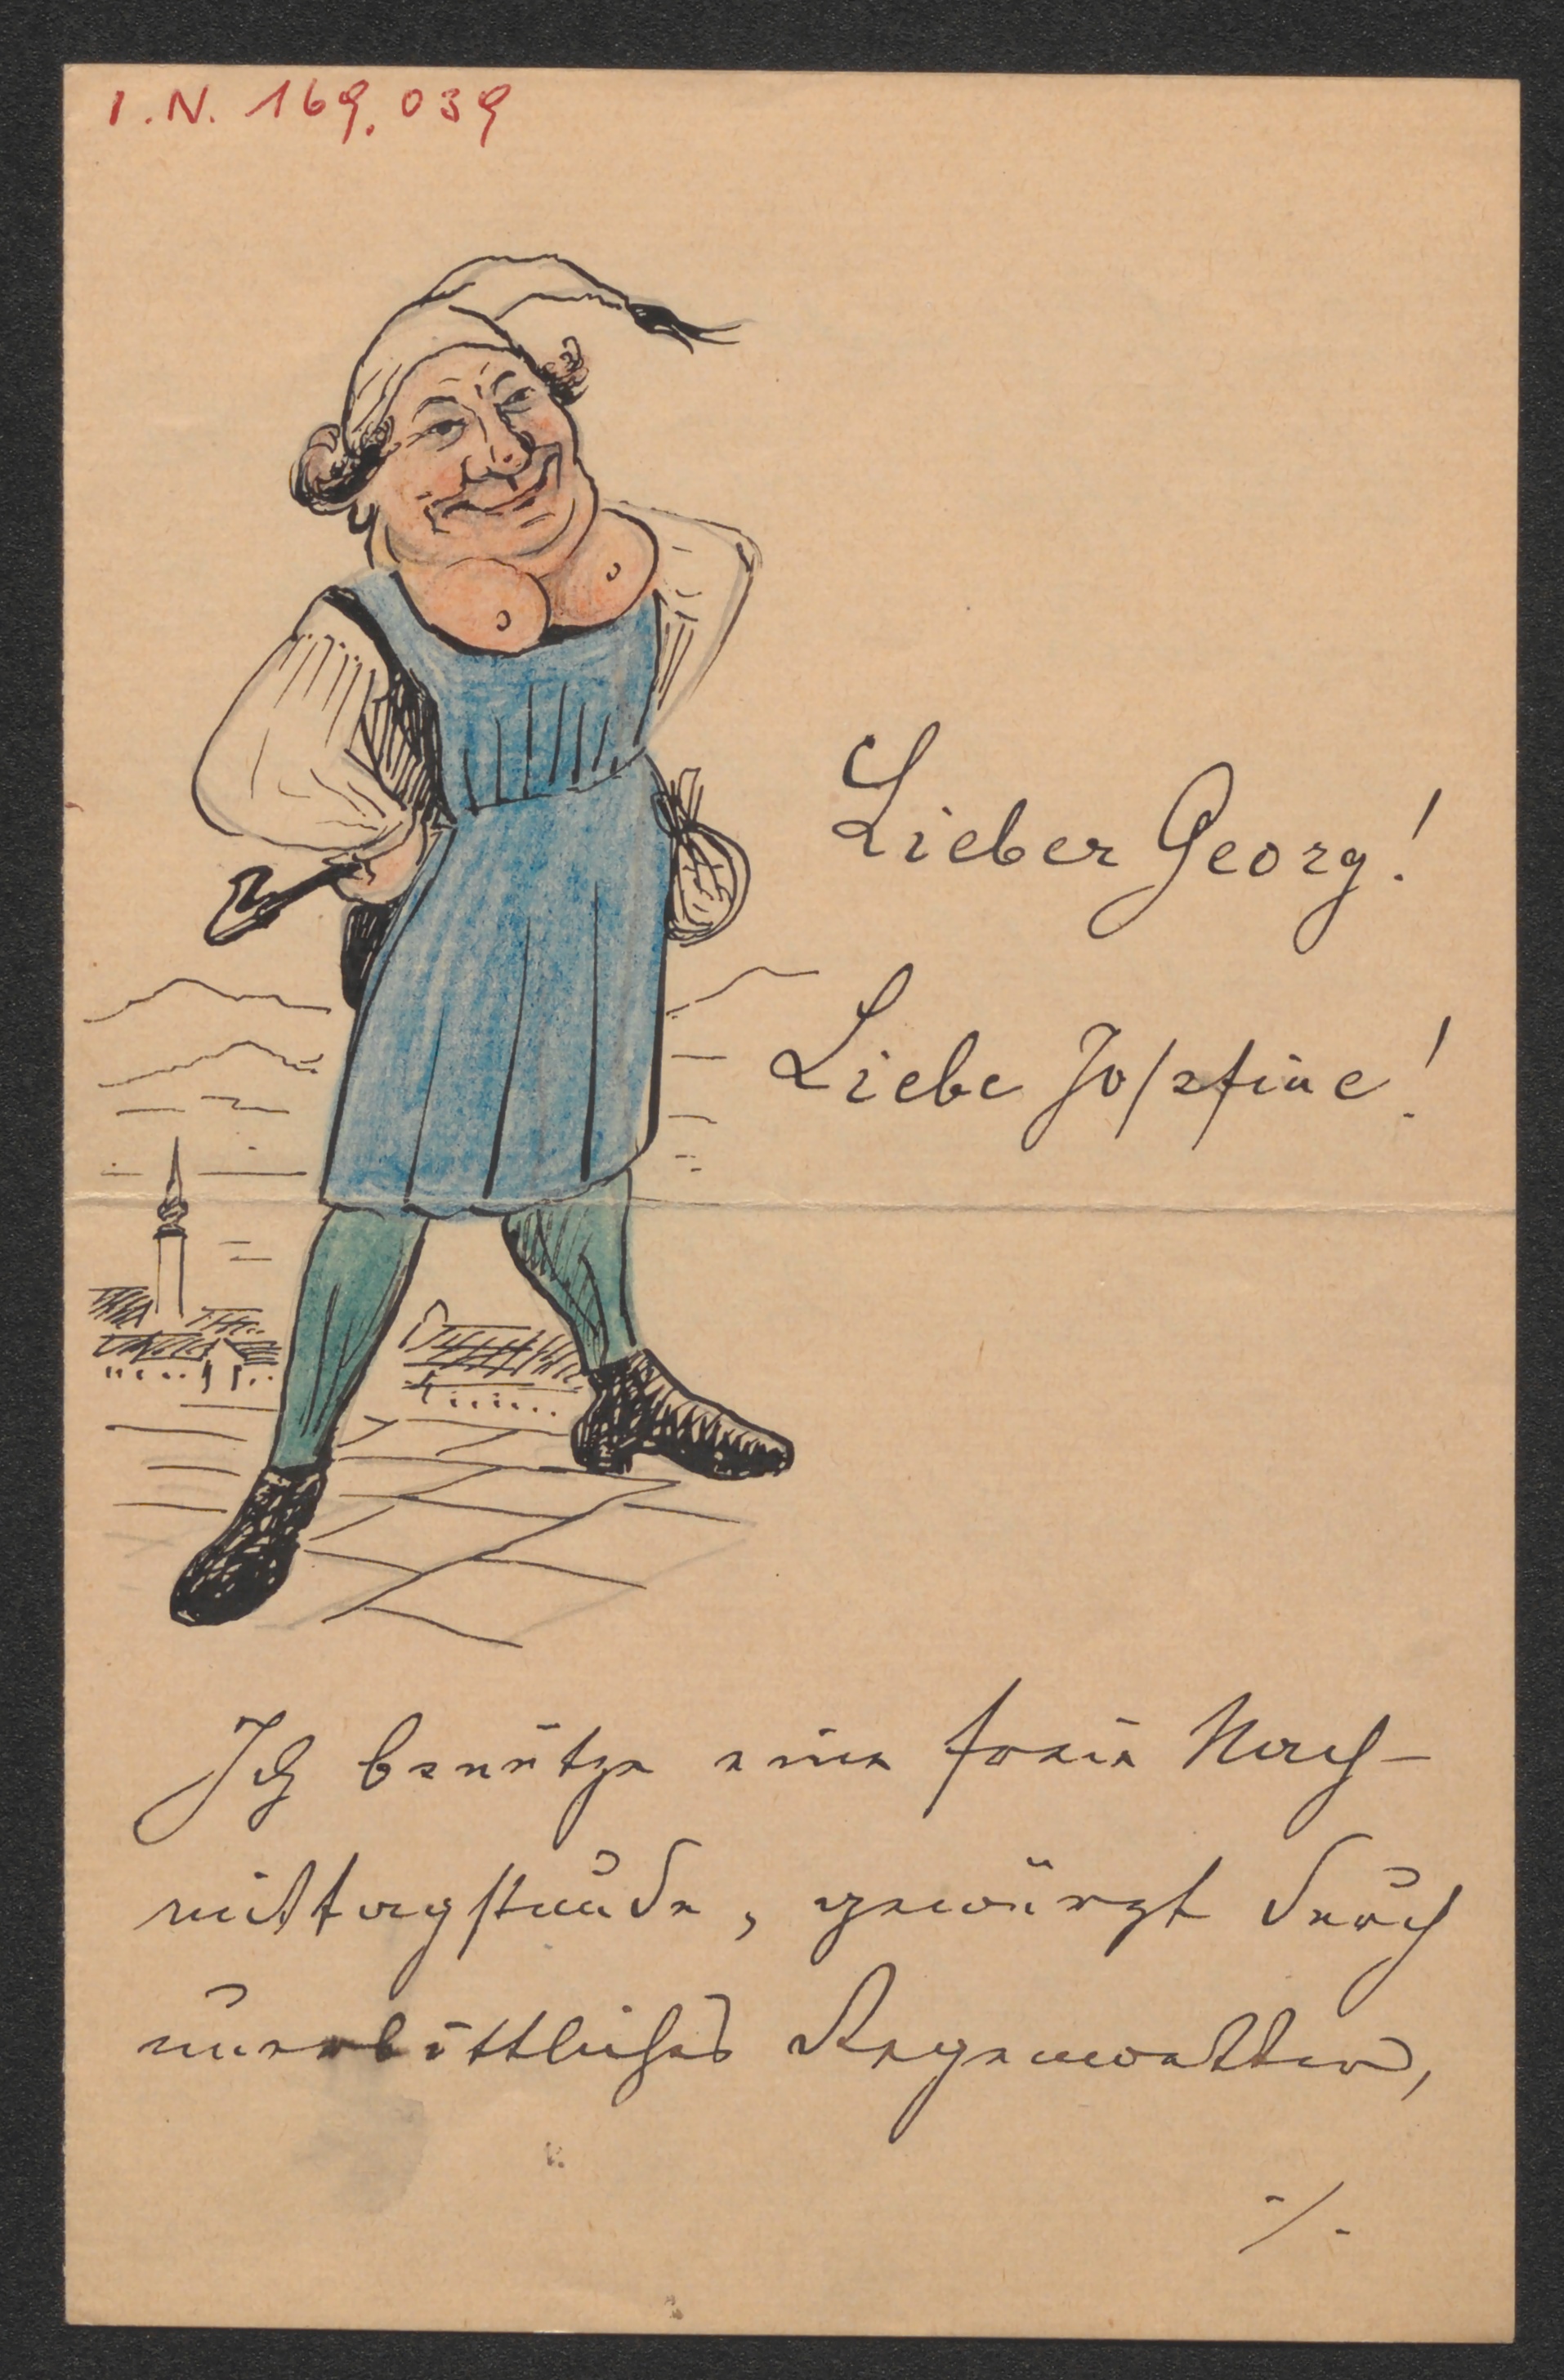 I.N. 169.039
Lieber Georg!
Liebe Josefine!
Ich benütze eine freie Nach-
mittagstunde, gewürzt durch
unerbittliches Regenwetter,
./.